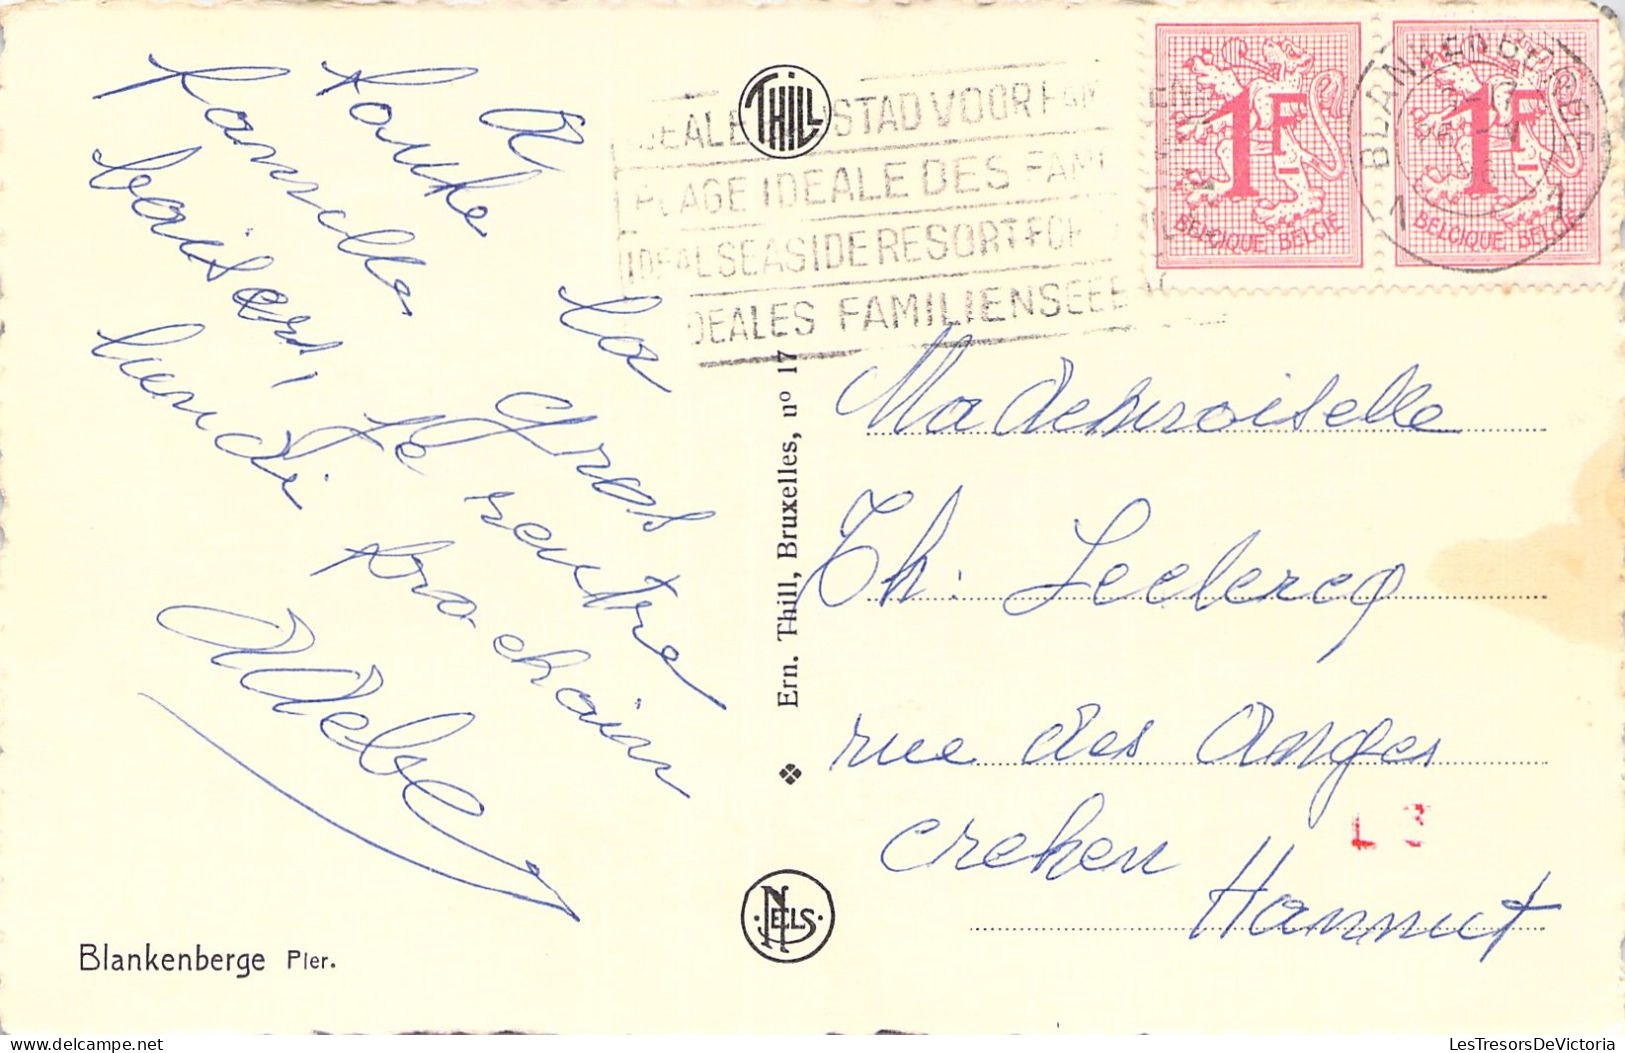 A
toute la
famille gros
baisers, Je rentre
lundi prochain
Adèle
Blankenberge Pier.
THILL
Ern. Thill, Bruxelles, nº 17
NELS
STAD VOOR FAM
PLAGE IDEALE DES FAMI
IDEAL SEASIDE RESORT FOR
IDEALES FAMILIENSEEB
1F
BELGIQUE BELGIË
1F
BELGIQUE BELGIË
BLANKENBERGE
1 1
Mademoiselle
Th. Leclercq
rue des Anges
Crehen
Hannut
L 3
delcampe.net
LesTresorsDeVictoria